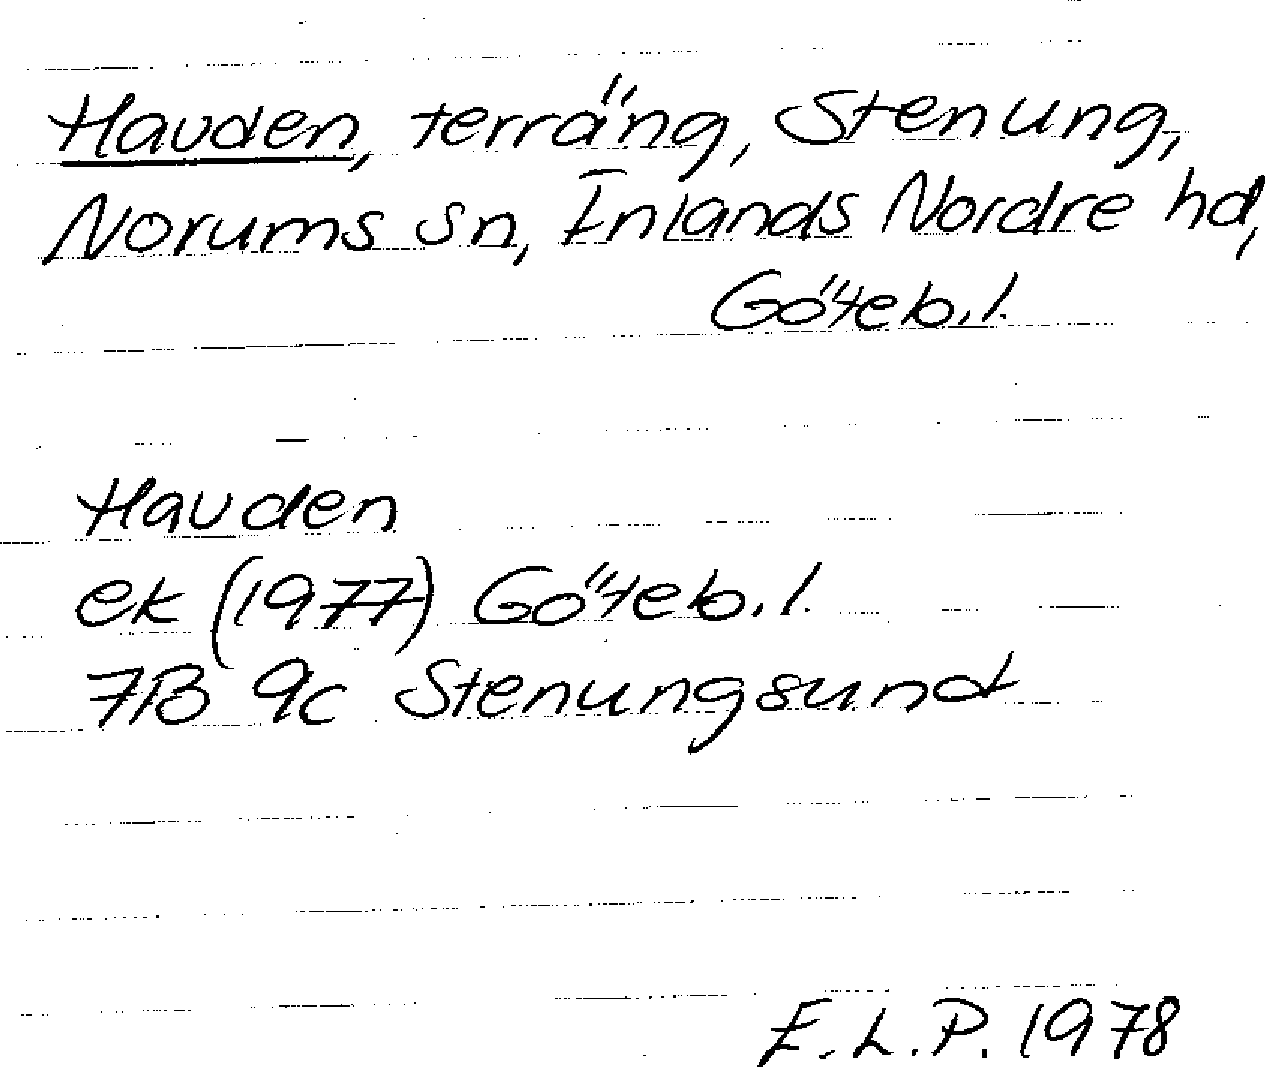 Hauden, terräng, Stenung,
Norums sn, Inlands Nordre hd,
Göteb.l.
Hauden
ek (1977) Göteb.l.
7B 9c Stenungsund
E.L.P. 1978